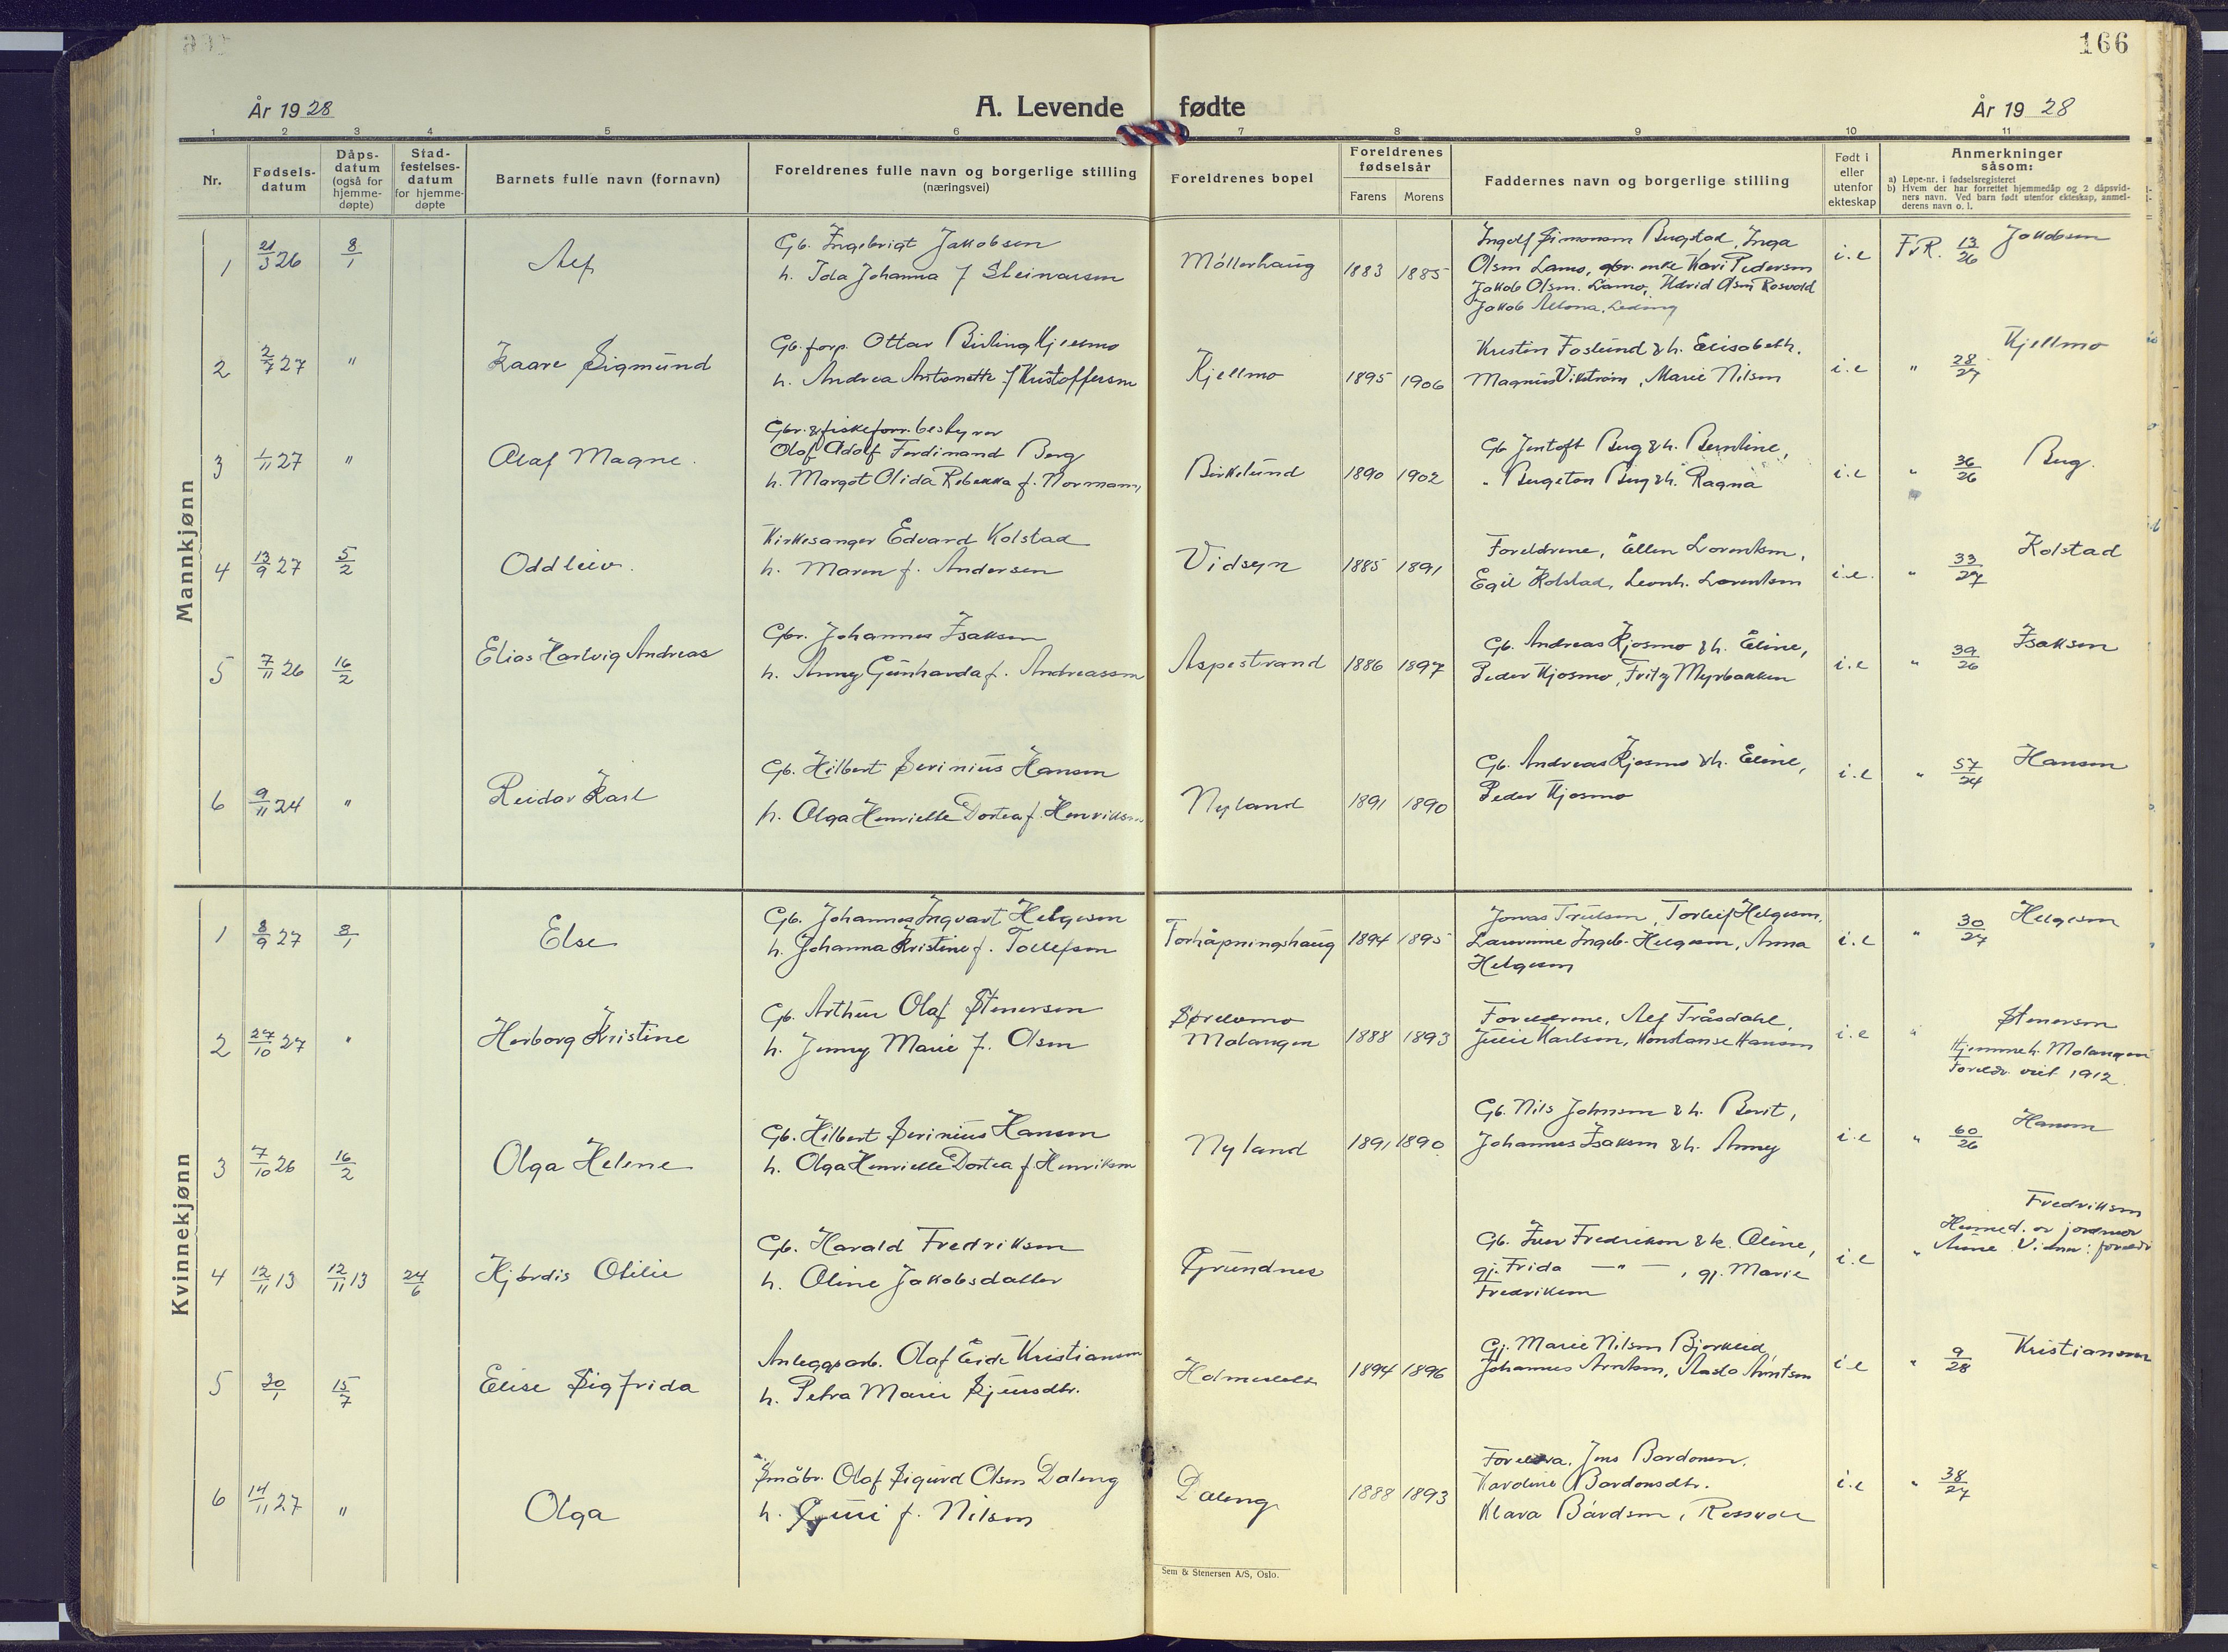 166
År 1928
A. Levende fødte
År 1928
1 2 3 4 5 6 7 8 9 10 11
Nr.
Fødsels-
datum
Dåps-
datum
(også for
hjemme-
døpte)
Stad-
festelses-
datum
for hjemme-
døpte
Barnets fulle navn (fornavn)
Foreldrenes fulle navn og borgerlige stilling
(næringsvei)
Foreldrenes bopel
Foreldrenes
fødselsår
Farens Morens
Faddernes navn og borgerlige stilling
Født i
eller
utenfor
ekteskap
Anmerkninger
såsom:
a) Løpe-nr. i fødselsregisteret
b) Hvem der har forrettet hjemmedåp og 2 dåpsvid-
ners navn. Ved barn født utenfor ekteskap, anmel-
derens navn o. l.
Mannkjønn
1 21/3 26 8/1 Alf
Gb. Ingebrigt Jakobsen
h. Ida Johanna f Steinarsen
Møllerhaug 1883 1885
Ingolf Simonsen Bugstad, Inga
Olsen Lamo, gbr. enke Kari Pedersen
Jakob Olsen Lamo, Hårid Olsen Rosvold
Jakob
i.e F.R. 13/26 Jakobsen
2 2/7 27 " Kaare Sigmund
Gb. forp. Ottar Birling Kjellmo
h. Andrea Antonette f Kristoffersen
Kjellmo 1895 1906
Kristen Foslund & h. Elisabeth.
Magnus Vikstrøm, Marie Nilsen
i.e " 28/27 Kjellmo
3 1/11 27 " Olaf Magne.
Gbr. & fiskeforr. bestyrer
Olaf Adolf Ferdinand Berg
h. Margot Olida Rebekka f. Normann,
Birkelund 1890 1902
Gb Jentoft Berg & h. Berntine,
" Bergeton Berg & h. Ragna
i.e " 36/26 Berg.
4 13/9 27 5/2 Oddleiv.
Kirkesanger Edvard Kolstad
h. Maren f. Andersen
Vidsyn 1885 1891
Foreldrene, Ellen Lorentsen,
Egil Kolstad, Leonh. Lorentsen
i.e. " 33/27 Kolstad
5 7/11 26 16/2 Elias Hartvig Andreas
Gbr. Johannes Isaksen
h. Anny Gunharda f. Andreassen
Aspestrand 1886 1897
Gb. Andreas Kjosmo & h. Eline,
Peder Kjosmo, Fritz Myrbakken
i.e " 39/26 Isaksen
6 9/11 24 " Reidar Karl
Gb. Hilbert Serinius Hansen
h. Olga Henriette Dortea f. Henriksen
Nyland 1891 1890
Gb. Andreas Kjosmo & h. Eline,
Peder Kjosmo
i.e " 57/24 Hansen
Kvinnekjønn
1 8/9 27 8/1 Else
Gb. Johannes Ingvart Helgesen
h. Johanna Kristine f. Tollefsen
Forhåpningshaug 1894 1895
Jonas Trulsen, Torleif Helgesen,
Ingeb. Helgesen, Anna
Helgesen
i.e " 30/27 Helgesen
2 27/10 27 " Herborg Kristine
Gb. Arthur Olaf Stenersen
h. Jenny Marie f. Olsen
Sørelvmo
Malangen 1888 1893
Foreldrene, Alf Tråsdahl,
Julie Karlsen, Konstanse Hansen
i.e " Stenersen
Hjemmeh. Malangen
Foreldr. viet 1912.
3 7/10 26 16/2 Olga Helene
Gb. Hilbert Serinius Hansen
h. Olga Henriette Dortea f. Henriksen
Nyland 1891 1890
Gb. Nils Johnsen & h. Berit,
Johannes Isaksen & h. Anny
i.e " 60/26 Hansen
4 12/11 13 12/11 13 24/6 Hjørdis Otilie
Gb. Harald Fredriksen
h. Oline Jakobsdatter
Grundnes
Gb. Iver Fredriksen & h. Oline,
gj. Frida — " —, gj. Marie
Fredriksen
i.e " Fredriksen
Hjemmed. av jordmor
5 30/1 15/7 Elise Sigfrida
Anleggsarb. Olaf Eide Kristiansen
h. Petra Marie Sjursdtr.
Holmeslett 1894 1896
Gj. Marie Nilsen Bjorkeid,
Johannes Arntsen, Aasta Arntsen
i.e " 9/28 Kristiansen
6 14/11 27 " Olga
Småbr. Olaf Sigurd Olsen Daleng
h. Guri f. Nilsen
Daleng 1888 1893
Foreldra, Jens Bardonsen.
Karoline Bardonsdtr.
Klara Bårdsen, Rossvoll
i.e " 38/27
Sem & Stenersen A/S, Oslo.